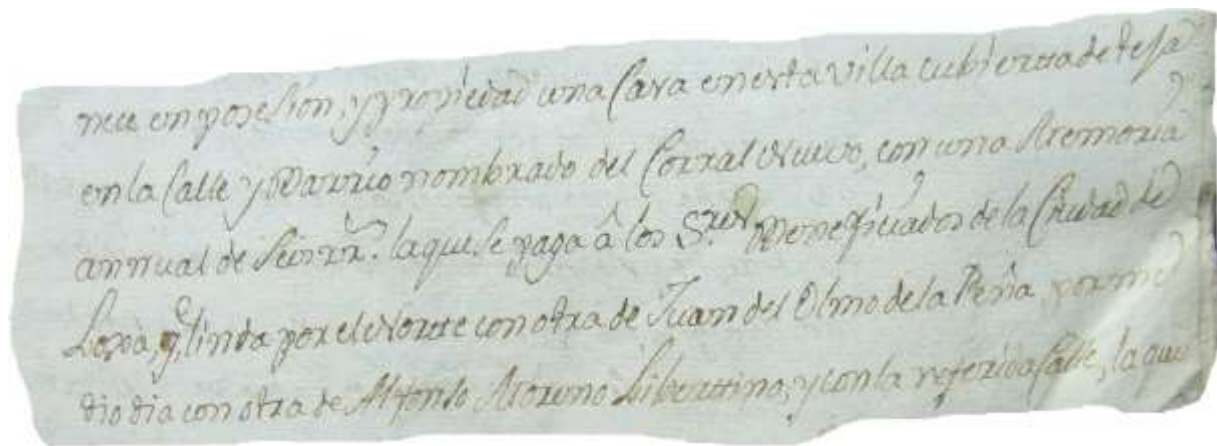 nece en posesion, y propiedad una Casa en esta villa cubierta de teja
en la Calle y Barrio nombrado del Corral Nuevo, con una Memoria
annual de seis rr.^s la que se paga â los S.^res Beneficiados de la Ciudad de
Loxa, q.^e linda por el Norte con otra de Juan del Olmo de la Peña, por me
dio dia con otra de Alfonso Moreno Libertino, y con la referida Calle, la que